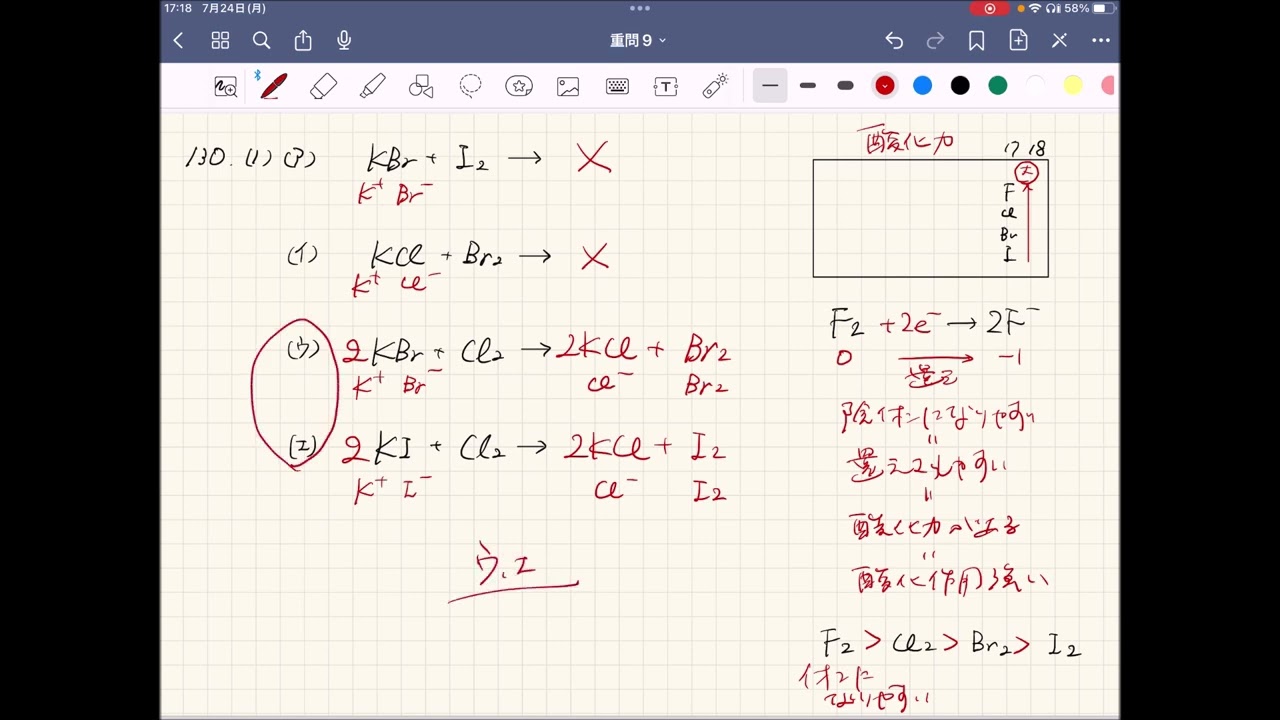 17:18 7月24日(月)
58%
重問 9
130. (1) (ア) KBr + I₂ → ×
K⁺ Br⁻
(イ) KCl + Br₂ → ×
K⁺ Cl⁻
(ウ) 2KBr + Cl₂ → 2KCl + Br₂
K⁺ Br⁻ Cl⁻ Br₂
(エ) 2KI + Cl₂ → 2KCl + I₂
K⁺ I⁻ Cl⁻ I₂
ウ.エ
酸化力
17 18
大
F
Cl
Br
I
F₂ + 2e⁻ → 2F⁻
0 -1
還元
陰イオンになりやすい
"
還元されやすい
"
酸化力がある
"
酸化作用強い
F₂ > Cl₂ > Br₂ > I₂
イオンに
なりやすい